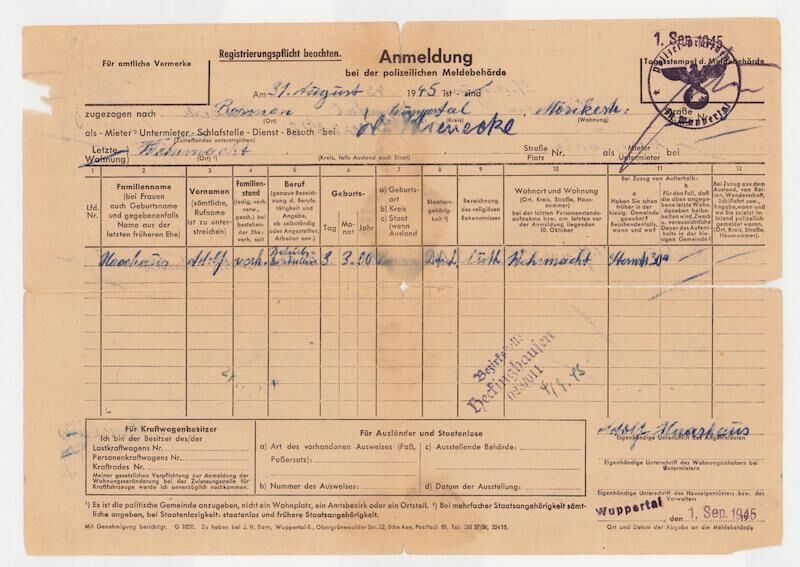 Für amtliche Vermerke
Registrierungspflicht beachten.
Anmeldung
bei der polizeilichen Meldebehörde
1. Sep. 1945
Tagesstempel d. Meldebehörde
Am 31. August 1945 ist sind
zugezogen nach Barmen Wuppertal Mörikestr.
(Ort) (Kreis) (Wohnung) Straße
als - Mieter - Untermieter - Schlafstelle - Dienst - Besuch bei
(Zutreffendes unterstreichen)
Letzte Wohnung Wehrmacht Straße Platz Nr. als Mieter Untermieter bei
(Ort ¹) (Kreis, falls Ausland auch Staat)
1 2 3 4 5 6 7 8 9 10 11 12
Lfd. Nr.
Familienname (bei Frauen auch Geburtsname und gegebenenfalls Name aus der letzten früheren Ehe)
Vornamen (sämtliche, Rufname ist zu unterstreichen)
Familienstand (ledig, verh. verw., gesch.) bei bestehender Ehe: verh. seit
Beruf (genaue Bezeichnung d. Berufstätigkeit und Angabe, ob selbständig oder Angestellter, Arbeiter usw.)
Geburts-
Tag Monat Jahr
a) Geburtsort
b) Kreis
c) Staat (wenn Ausland
Staatsangehörigkeit ²)
Bezeichnung des religiösen Bekenntnisses
Wohnort und Wohnung (Ort, Kreis, Straße, Hausnummer) bei der letzten Personenstandsaufnahme bzw. am letzten der Anmeldung liegenden 10. Oktober
Bei Zuzug von Außerhalb:
a Haben Sie schon früher in der hiesig. Gemeinde gewohnt? Bejahendenfalls, wann und wo?
b Für den Fall, daß die oben angegebene letzte Wohn. daneben beibehalten wird, Zweck u. voraussichtliche Dauer des Aufenthalts in der hiesigen Gemeinde?
Bei Zuzug aus dem Ausland, von Reisen, Wanderschaft, Schiffahrt usw., Angabe, wann und wo sie zuletzt im Inland polizeilich gemeldet waren. (Ort, Kreis, Straße, Hausnummer).
Haarhaus Adolf verh. 3. 3. 00 Deutsch luth Wehrmacht
Bezirksstelle
Heckinghausen
025/011
4/9. 45
Für Kraftwagenbesitzer
Ich bin der Besitzer des/der
Lastkraftwagens Nr.
Personenkraftwagens Nr.
Kraftrades Nr.
Meiner gesetzlichen Verpflichtung zur Anmeldung der Wohnungsveränderung bei der Zulassungsstelle für Kraftfahrzeuge werde ich unverzüglich nachkommen.
Für Ausländer und Staatenlose
a) Art des vorhandenen Ausweises (Paß, Paßersatz):
b) Nummer des Ausweises:
c) Ausstellende Behörde:
d) Datum der Ausstellung:
Adolf Haarhaus
Eigenhändige Unterschrift des Angemeldeten
Eigenhändige Unterschrift des Wohnungsinhabers bei Untermietern
Eigenhändige Unterschrift des Hauseigentümers bzw. des Verwalters
Wuppertal, den 1. Sep. 1945
Ort und Datum der Abgabe an die Meldebehörde
¹) Es ist die politische Gemeinde anzugeben, nicht ein Wohnplatz, ein Amtsbezirk oder ein Ortsteil. ²) Bei mehrfacher Staatsangehörigkeit sämtliche angeben, bei Staatenlosigkeit: staatenlos und frühere Staatsangehörigkeit.
Mit Genehmigung berichtigt.